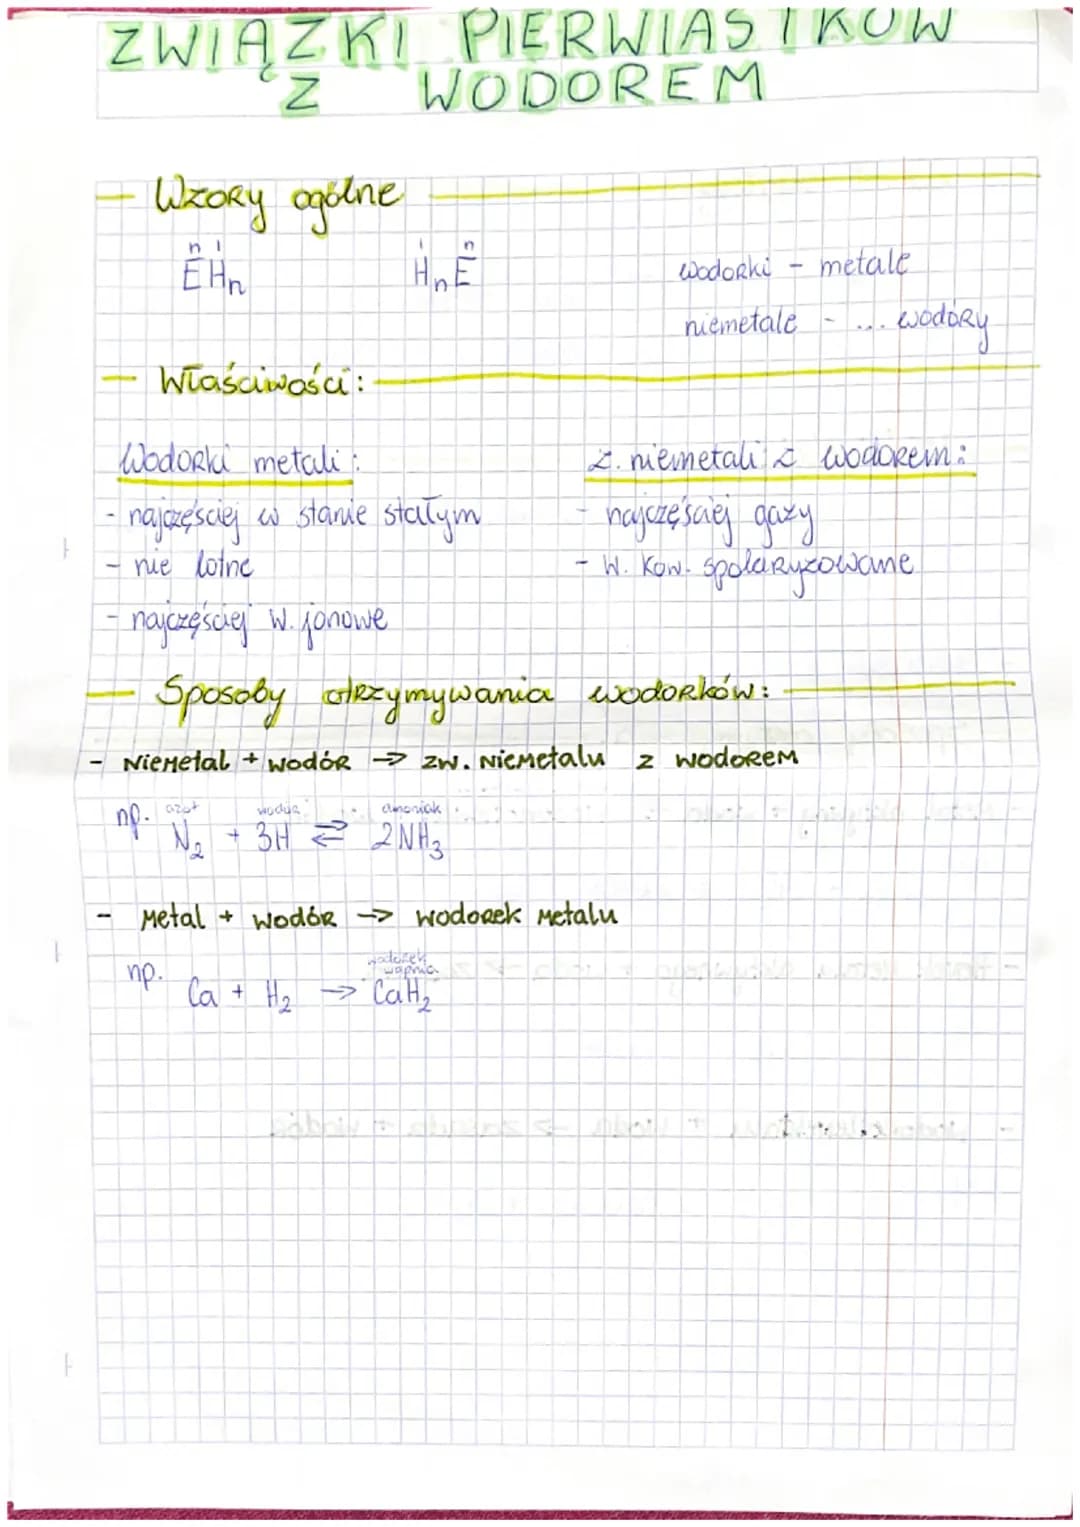 ZWIĄZKI PIERWIASTKÓW
Z WODOREM
— Wzory ogólne
n I
EHn
I n
HnE
wodorki - metale
niemetale - ... wodory
— Właściwości:
Wodorki metali:
- najczęściej w stanie stałym
- nie lotne
- najczęściej w. jonowe
z. niemetali z wodorem:
- najczęściej gazy
- w. kow. spolaryzowane
— Sposoby otrzymywania wodorków:
- Niemetal + wodór → zw. niemetalu z wodorem
azot wodór amoniak
np. N₂ + 3H ⇄ 2NH₃
- Metal + wodór → wodorek metalu
wodorek
wapnia
np. Ca + H₂ → CaH₂